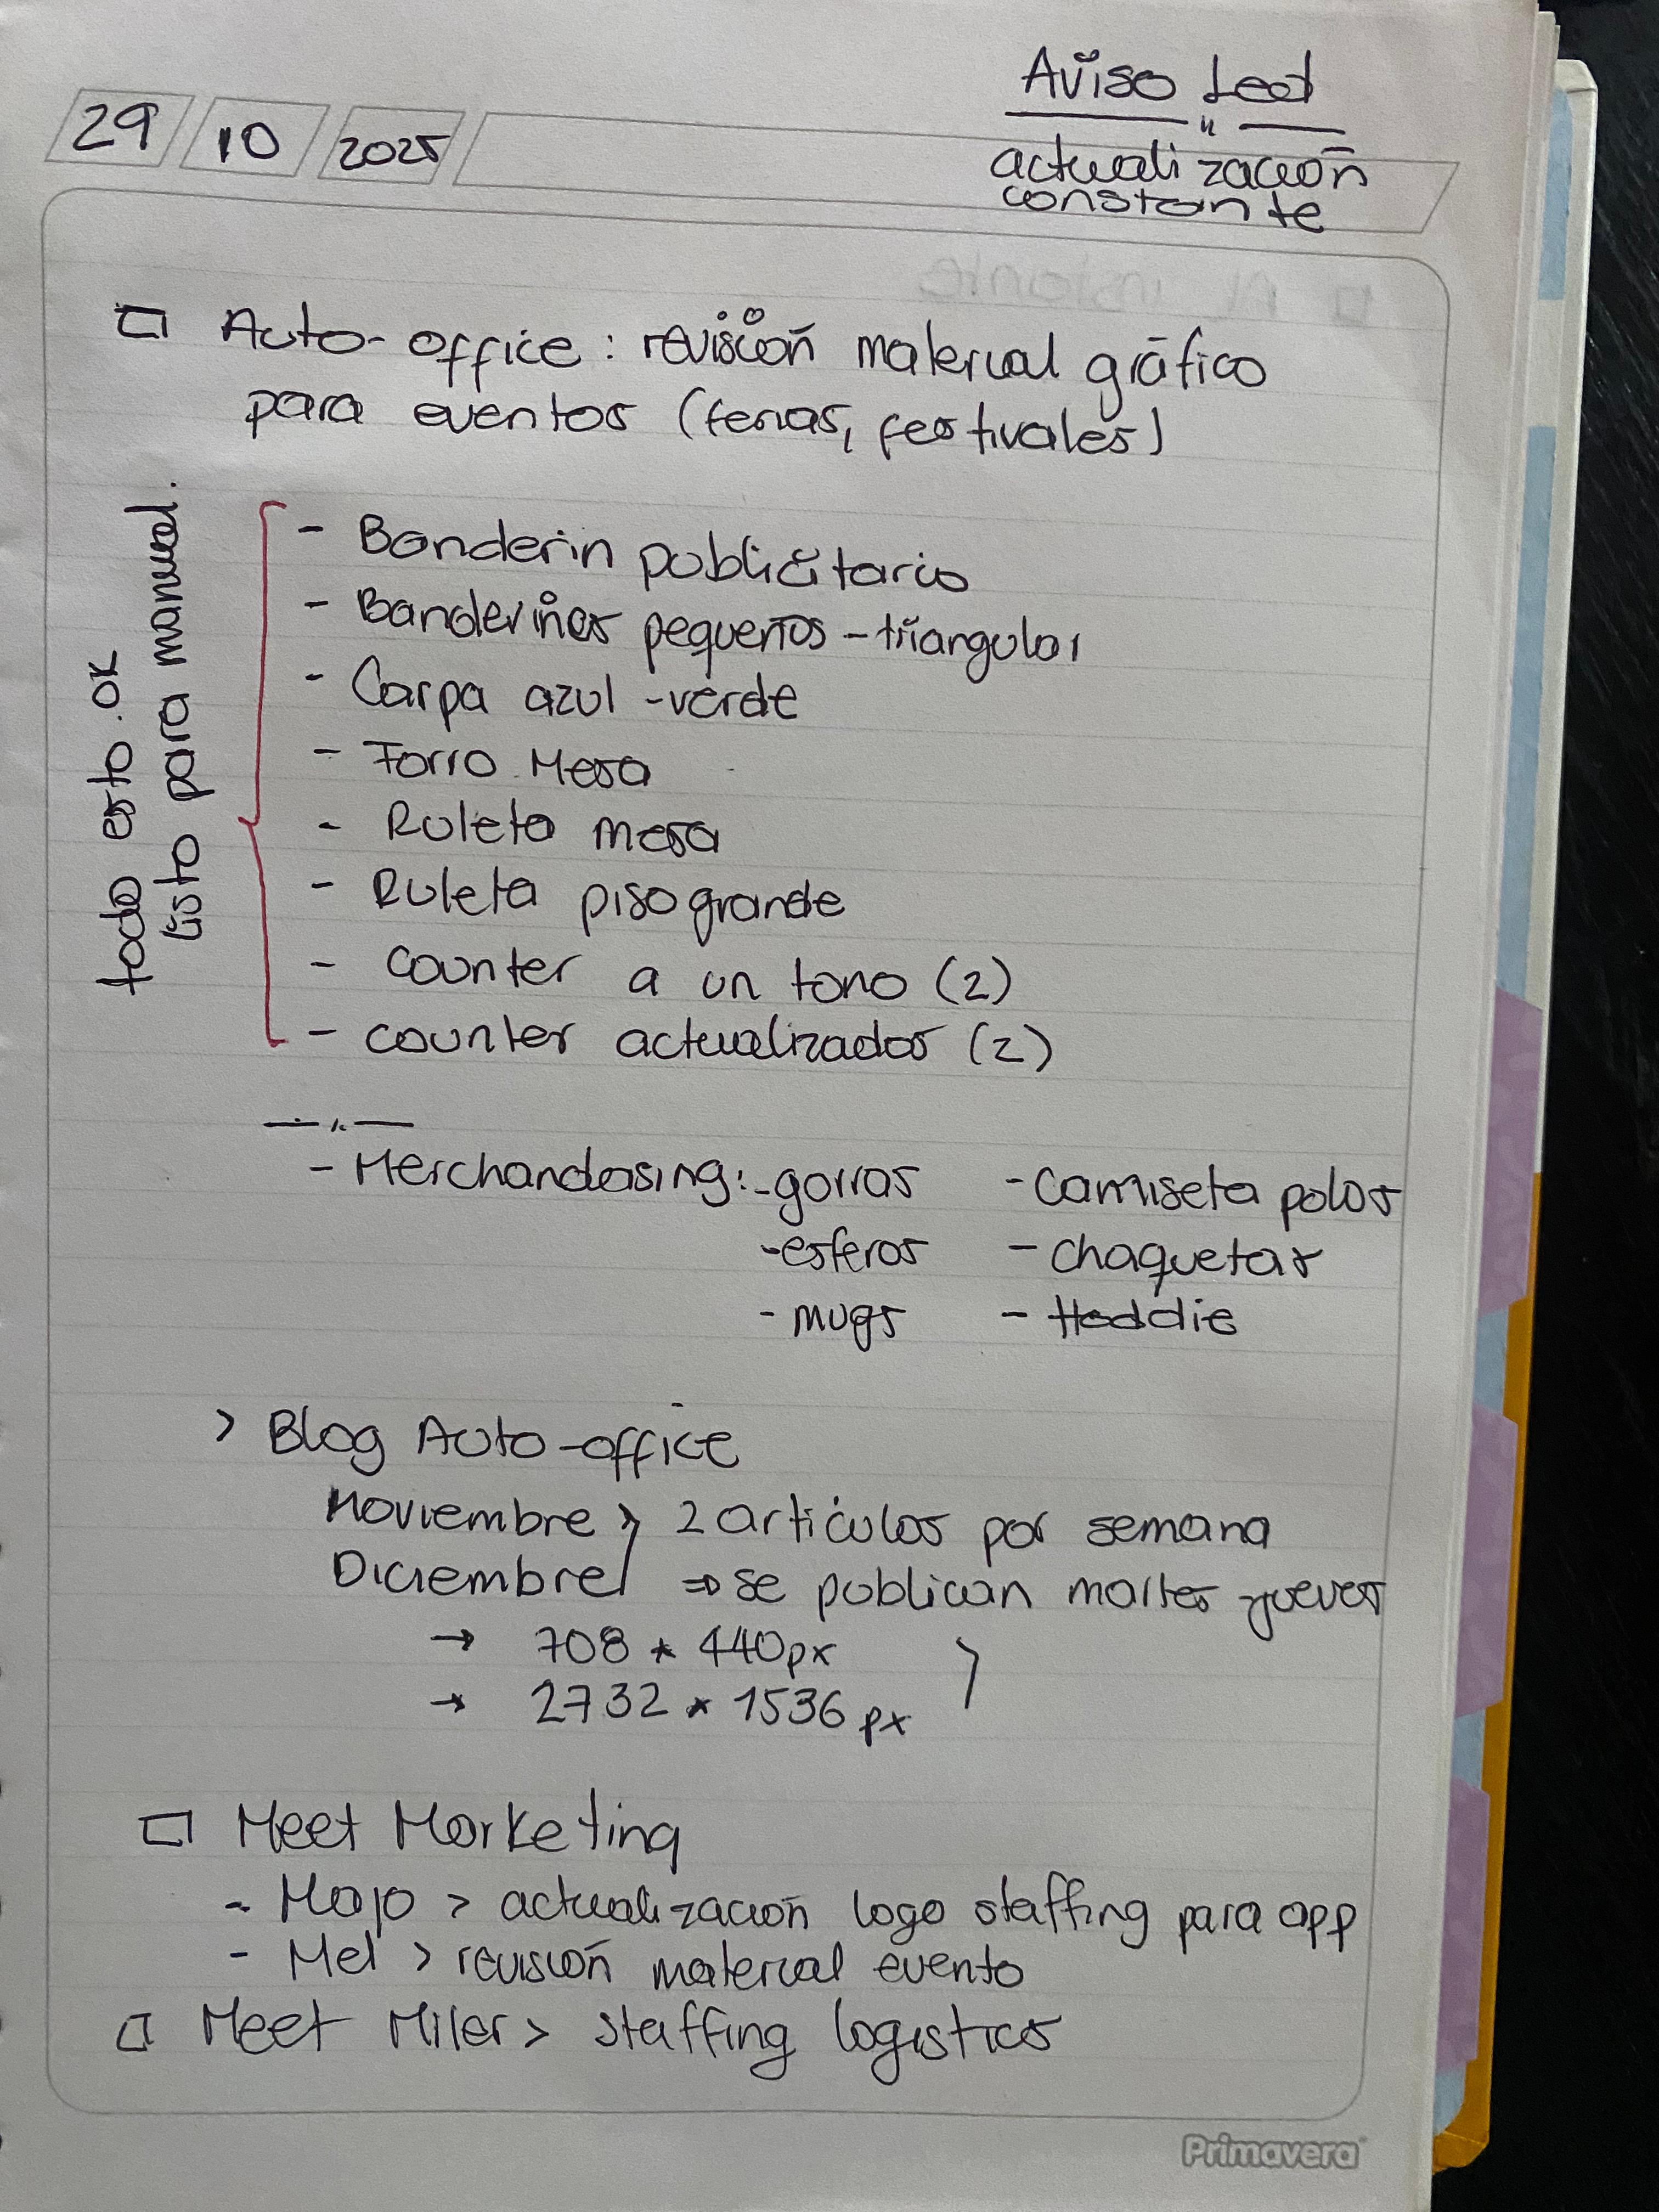 29 10 2025
Aviso Led
actualización
constante
Auto-office: revisión material gráfico
para eventos (ferias, festivales)
todo esto ok
listo para manual.
- Banderin publicitario
- Banderines pequeños - triangular
- Carpa azul - verde
- Forro Mesa
- Ruleta mesa
- Ruleta piso grande
- counter a un tono (2)
- counter actualizados (2)
- Merchandasing: - gorras - Camiseta polos
- esferos - chaquetas
- mugs - Hoddie
> Blog Auto-office
Noviembre > 2 artículos por semana
Diciembre ⇒ se publican martes y jueves
→ 708 * 440 px
→ 2732 * 1536 px
Meet Marketing
- Majo > actualización logo staffing para app
- Mel > revisión material evento
Meet Miler > staffing logistics
Primavera